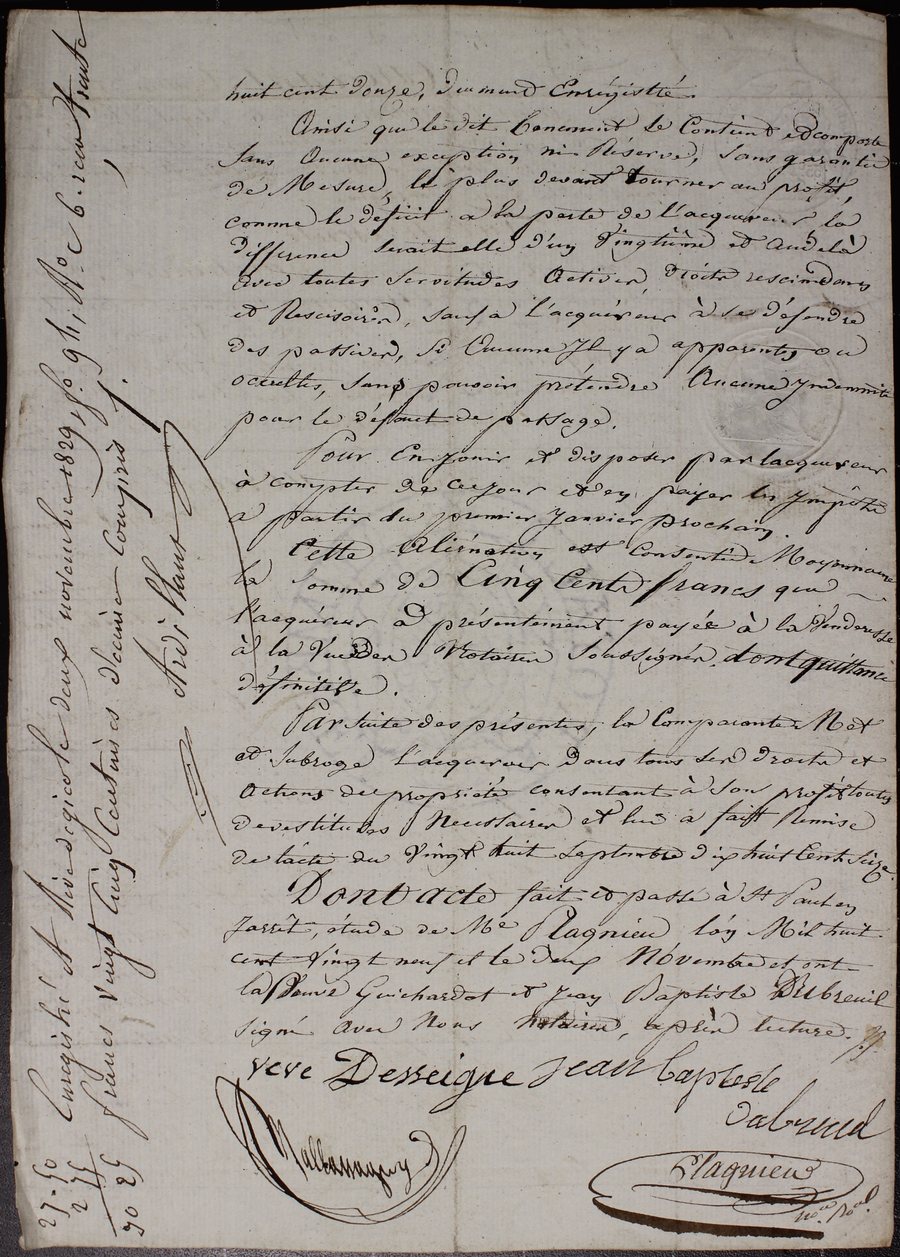 huit cent douze, dument Enrégistré.
Ainsi que le dit tenement se Contient et comporte
sans Aucune exception ni Réserve, sans garantie
de Mesure, le plus devant tourner au profit,
comme le déficit a la perte de l'acquereur la
difference serait elle d'un Vingtième et Audelà
avec toutes servitudes Actives, Droits rescindans
et Rescisoires, sauf a l'acquéreur à se défendre
des passives, si Aucune Il y a apparentes ou
occultes, sans pouvoir prétendre Aucune Indemnité
pour le défaut de passage.
Pour En jouir et disposer par lacquereur
à compter de ce jour et en payer les Impôts
a partir du premier Janvier prochain.
Cette Aliénation est Consentie Moyennant
la somme de Cinq Cents francs que
l'acquéreur a présentement payée à la Venderesse
à la Vue des Notaires soussignés, dont quittance
définitive.
Par suite des présentes, la Comparante Met
et subroge l'acquereur Dans tous ses droits et
Actions de propriété consentant à son profit toutes
devestitures Necessaires et lui a fait remise
de l'acte du Vingt huit septembre dix huit Cent Seize.
Dont acte fait et passé à St Paul en
Jarrêt, étude de Me Plagnieu l'an Mil huit
cent Vingt neuf et le deux Novembre et ont
la Veuve Guichardot et Jean Baptiste Dubreuil
signé avec Nous Notaires, après lecture.
veve Desseigne Jean Baptiste
dubreuil
Plagnieu
nore Roal
Enregistré A Rivedegier le deux novembre 1829, fo 94, Ro C 6. reçu trente
francs Vingt Cinq Centimes décime Compris
27-50
2 75
30 25